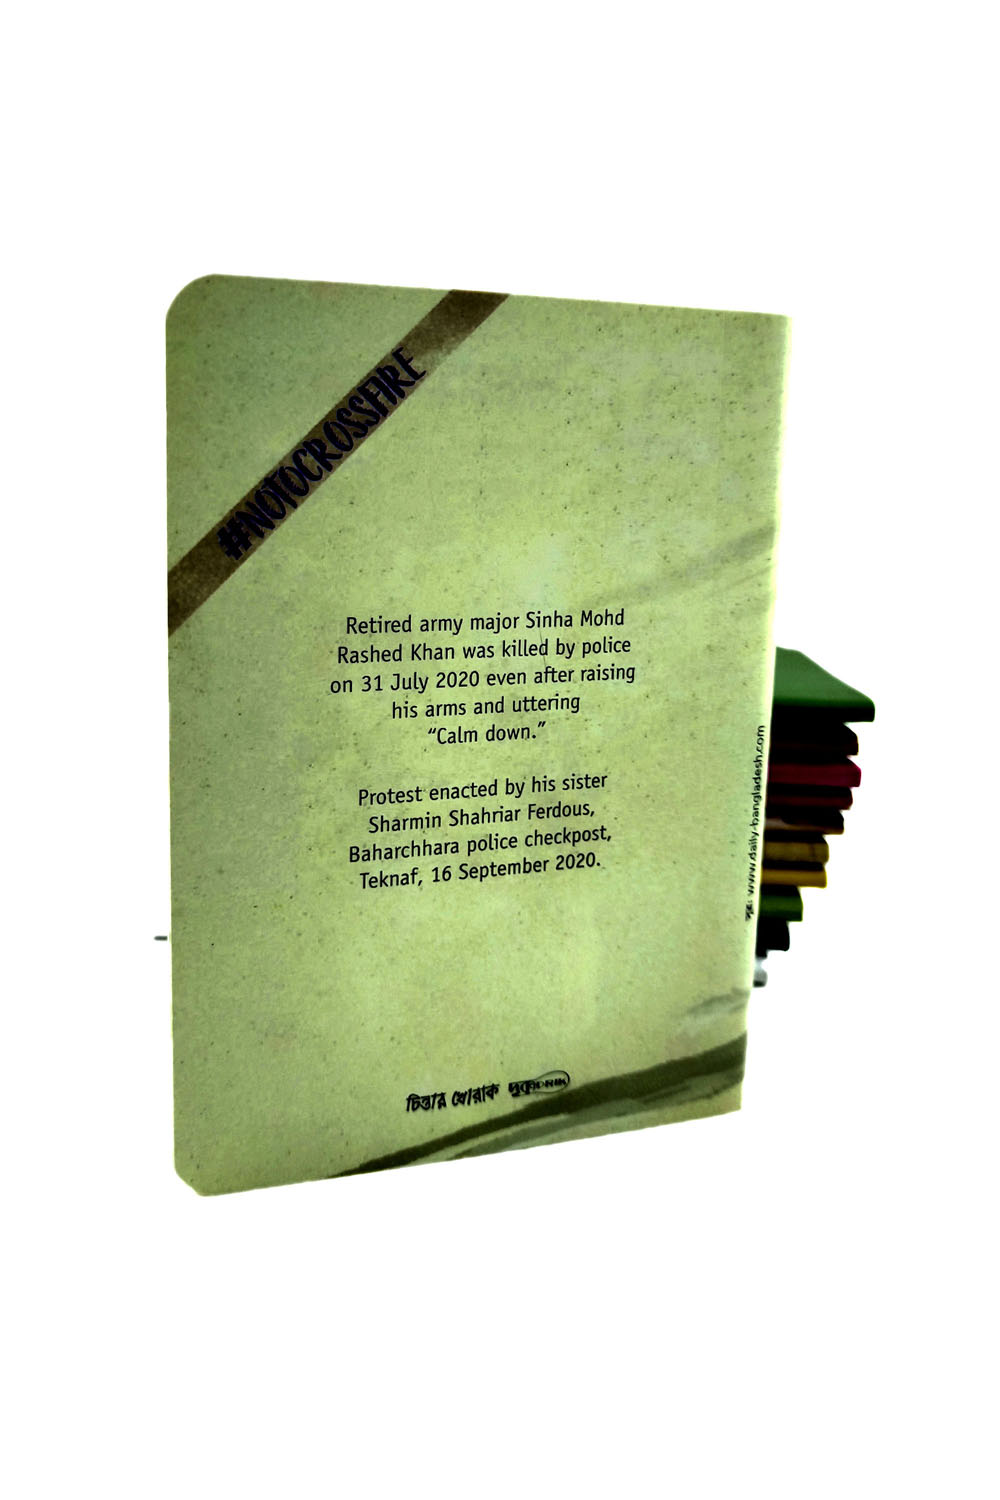 #NOTOCROSSFIRE
Retired army major Sinha Mohd
Rashed Khan was killed by police
on 31 July 2020 even after raising
his arms and uttering
“Calm down.”
Protest enacted by his sister
Sharmin Shahriar Ferdous,
Baharchhara police checkpost,
Teknaf, 16 September 2020.
www.daily-bangladesh.com
চিন্তার খোরাক দৃক DRIK